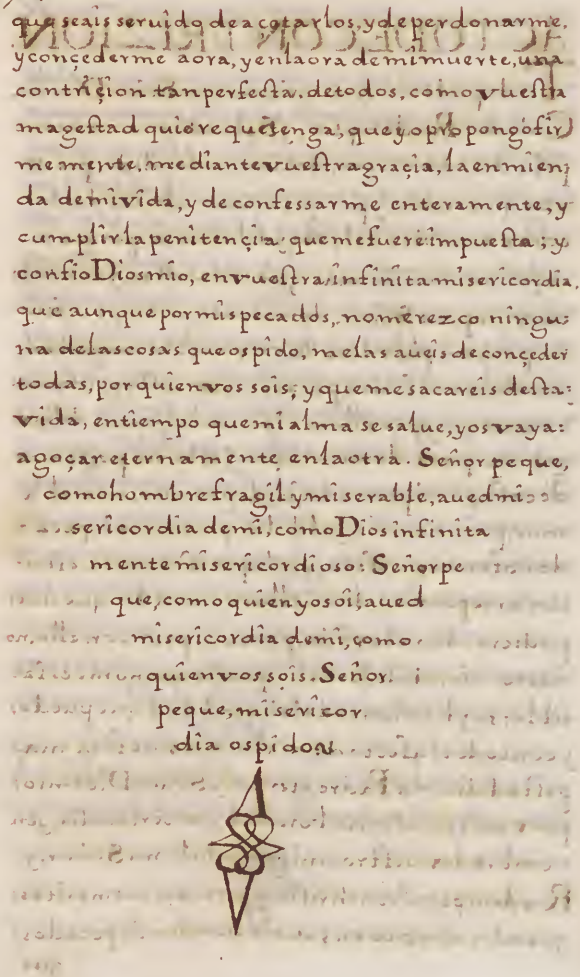 que seais seruido de açotarlos, y de perdonarme,
y conçederme aora, y en la ora de mi muerte, una
contriçion tan perfecta. de todos, como vuestra
magestad quiere que tenga; que yo propongo fir
memente, mediante vuestra graçia, la enmien;
da de mi vida, y de confessarme enteramente, y
cumplir la penitençia que me fuere impuesta; y
confio Dios mio, en vuestra infinita misericordia,
que aunque por mis pecados, no merezco ningu;
na de las cosas que os pido, me las aueis de conçeder
todas, por quien vos sois; y que me sacareis desta:
vida, en tiempo que mi alma se salue, y os vaya:
a goçar eternamente en la otra. Señor peque,
como hombre fragil y miserable, aued mi
sericordia de mi, como Dios infinita
mente misericordioso: Señor pe
que, como quien yo soi, aued
misericordia de mi, como
quien vos sois. Señor.
peque, misericor
dia os pido